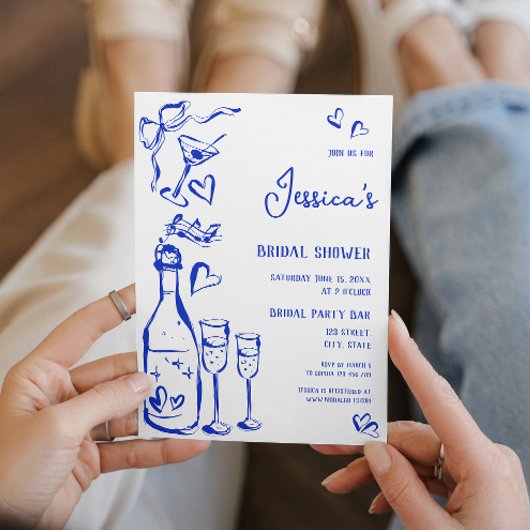 JOIN US FOR
Jessica's
BRIDAL SHOWER
SATURDAY JUNE 15, 20XX
AT 2 O'CLOCK
BRIDAL PARTY BAR
123 STREET,
CITY, STATE
RSVP BY MARCH 5
JESSICA IS REGISTERED AT